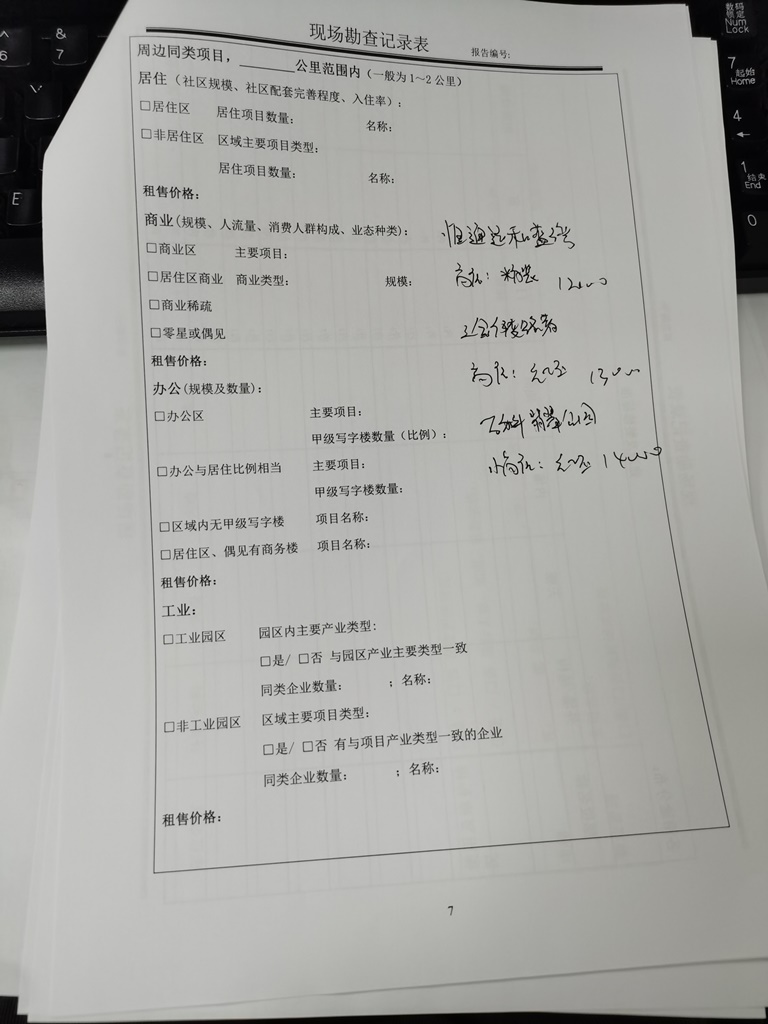 现场勘查记录表
报告编号:
周边同类项目，______公里范围内（一般为1～2公里）
居住（社区规模、社区配套完善程度、入住率）:
□居住区 居住项目数量: 名称:
□非居住区 区域主要项目类型:
居住项目数量: 名称:
租售价格:
商业(规模、人流量、消费人群构成、业态种类):
□商业区 主要项目:
□居住区商业 商业类型: 规模:
高层: 精装 12000
□商业稀疏
□零星或偶见
租售价格:
高层: 毛坯 13000
办公(规模及数量):
□办公区 主要项目:
万科翡翠公园
甲级写字楼数量（比例）:
□办公与居住比例相当 主要项目:
小高层: 毛坯 14000
甲级写字楼数量:
□区域内无甲级写字楼 项目名称:
□居住区、偶见有商务楼 项目名称:
租售价格:
工业:
□工业园区 园区内主要产业类型:
□是/ □否 与园区产业主要类型一致
同类企业数量: ; 名称:
□非工业园区 区域主要项目类型:
□是/ □否 有与项目产业类型一致的企业
同类企业数量: ; 名称:
租售价格:
7
6
&
7
E
数码
锁定
Num
Lock
7 起始
Home
4
←
1 结束
End
0